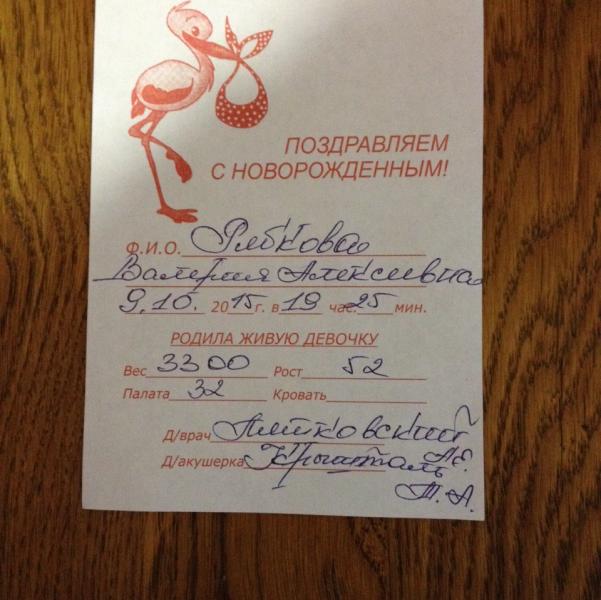 ПОЗДРАВЛЯЕМ
С НОВОРОЖДЕННЫМ!
Ф.И.О. Рябкова
Валерия Алексеевна
9.10. 2015г. в 19 час. 25 мин.
РОДИЛА ЖИВУЮ ДЕВОЧКУ
Вес 3300 Рост 52
Палата 32 Кровать
Д/врач
А.Е.
Д/акушерка Кришталь
Т.А.